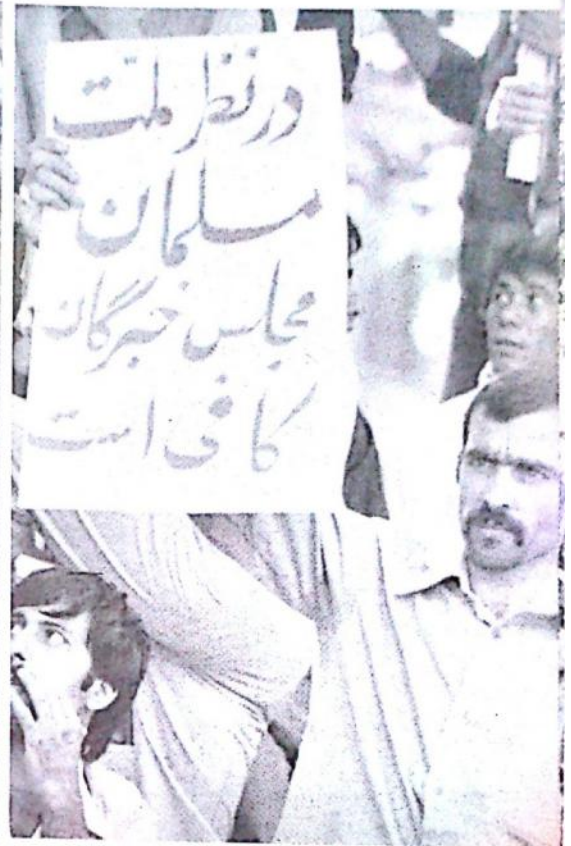 در نظر ملت
مسلمان
مجلس خبرگان
کافی است